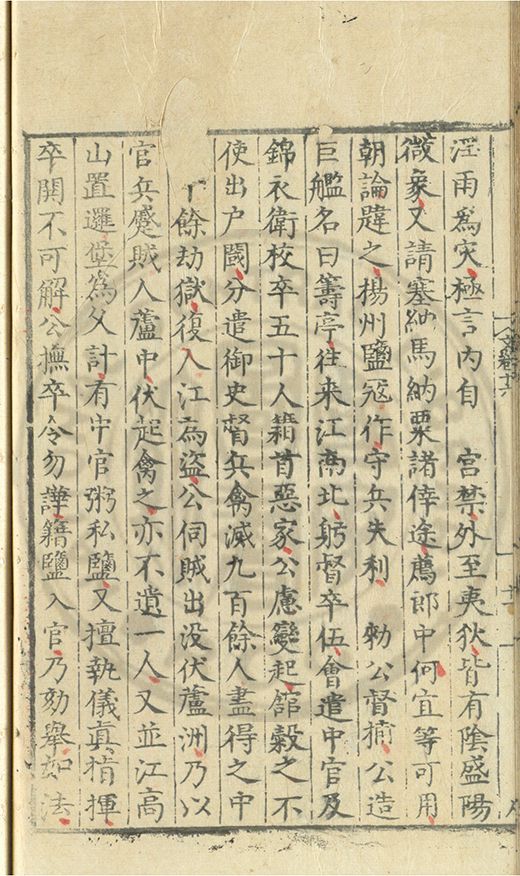 淫雨為灾極言內自　宮禁外至夷狄皆有陰盛陽
微象又請塞納馬納粟諸倖途薦郎中何宜等可用
朝論韙之揚州鹽冦作守兵失利　勑公督捕公造
巨艦名曰籌亭往来江南北躬督卒伍會遣中官及
錦衣衛校卒五十人籍首惡家公慮變起舘糓之不
使出户閾分遣御史督兵禽滅九百餘人盡得之中
餘劫獄復入江為盜公伺賊出没伏蘆洲乃以
官兵蹙賊入蘆中伏起禽之亦不遺一人又並江高
山置邏堡為久計有中官粥私鹽又擅執儀真指揮
卒鬨不可解公撫卒令勿譁籍鹽入官乃劾舉如法